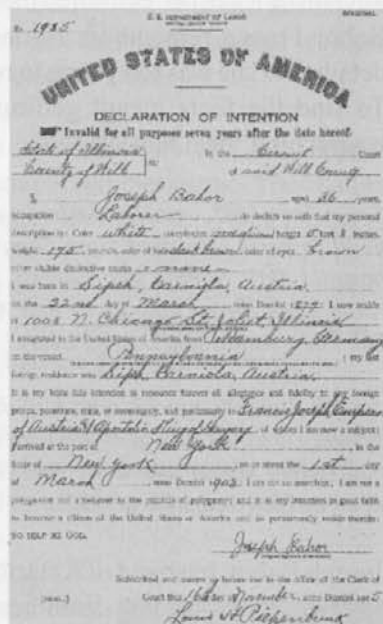 U. S. DEPARTMENT OF LABOR
No. 1985
UNITED STATES OF AMERICA
DECLARATION OF INTENTION
Invalid for all purposes seven years after the date hereof
State of Illinois
County of Will ss: In the Circuit Court
of said Will County
I, Joseph Bahor aged 26 years,
occupation Laborer do declare on oath that my personal
description is: Color white, complexion medium, height 5 feet 8 inches,
weight 175 pounds, color of hair dark brown, color of eyes brown
other visible distinctive marks none
I was born in Carniola, Austria
on the 22nd day of March, anno Domini 1879; I now reside
at 1005 N. Chicago St. Joliet, Illinois
I emigrated to the United States of America from Hamburg, Germany
on the vessel Pennsylvania; my last
foreign residence was Carniola, Austria.
It is my bona fide intention to renounce forever all allegiance and fidelity to any foreign
prince, potentate, state, or sovereignty, and particularly to Francis Joseph, Emperor
of Austria & Apostolic King of Hungary, of whom I am now a subject;
I arrived at the port of New York, in the
State of New York, on or about the 1st day
of March, anno Domini 1902; I am not an anarchist; I am not a
polygamist nor a believer in the practice of polygamy; and it is my intention in good faith
to become a citizen of the United States of America and to permanently reside therein:
SO HELP ME GOD.
Joseph Bahor
Subscribed and sworn to before me in the office of the Clerk of
[SEAL.] Court this 16th day of November, anno Domini 1905